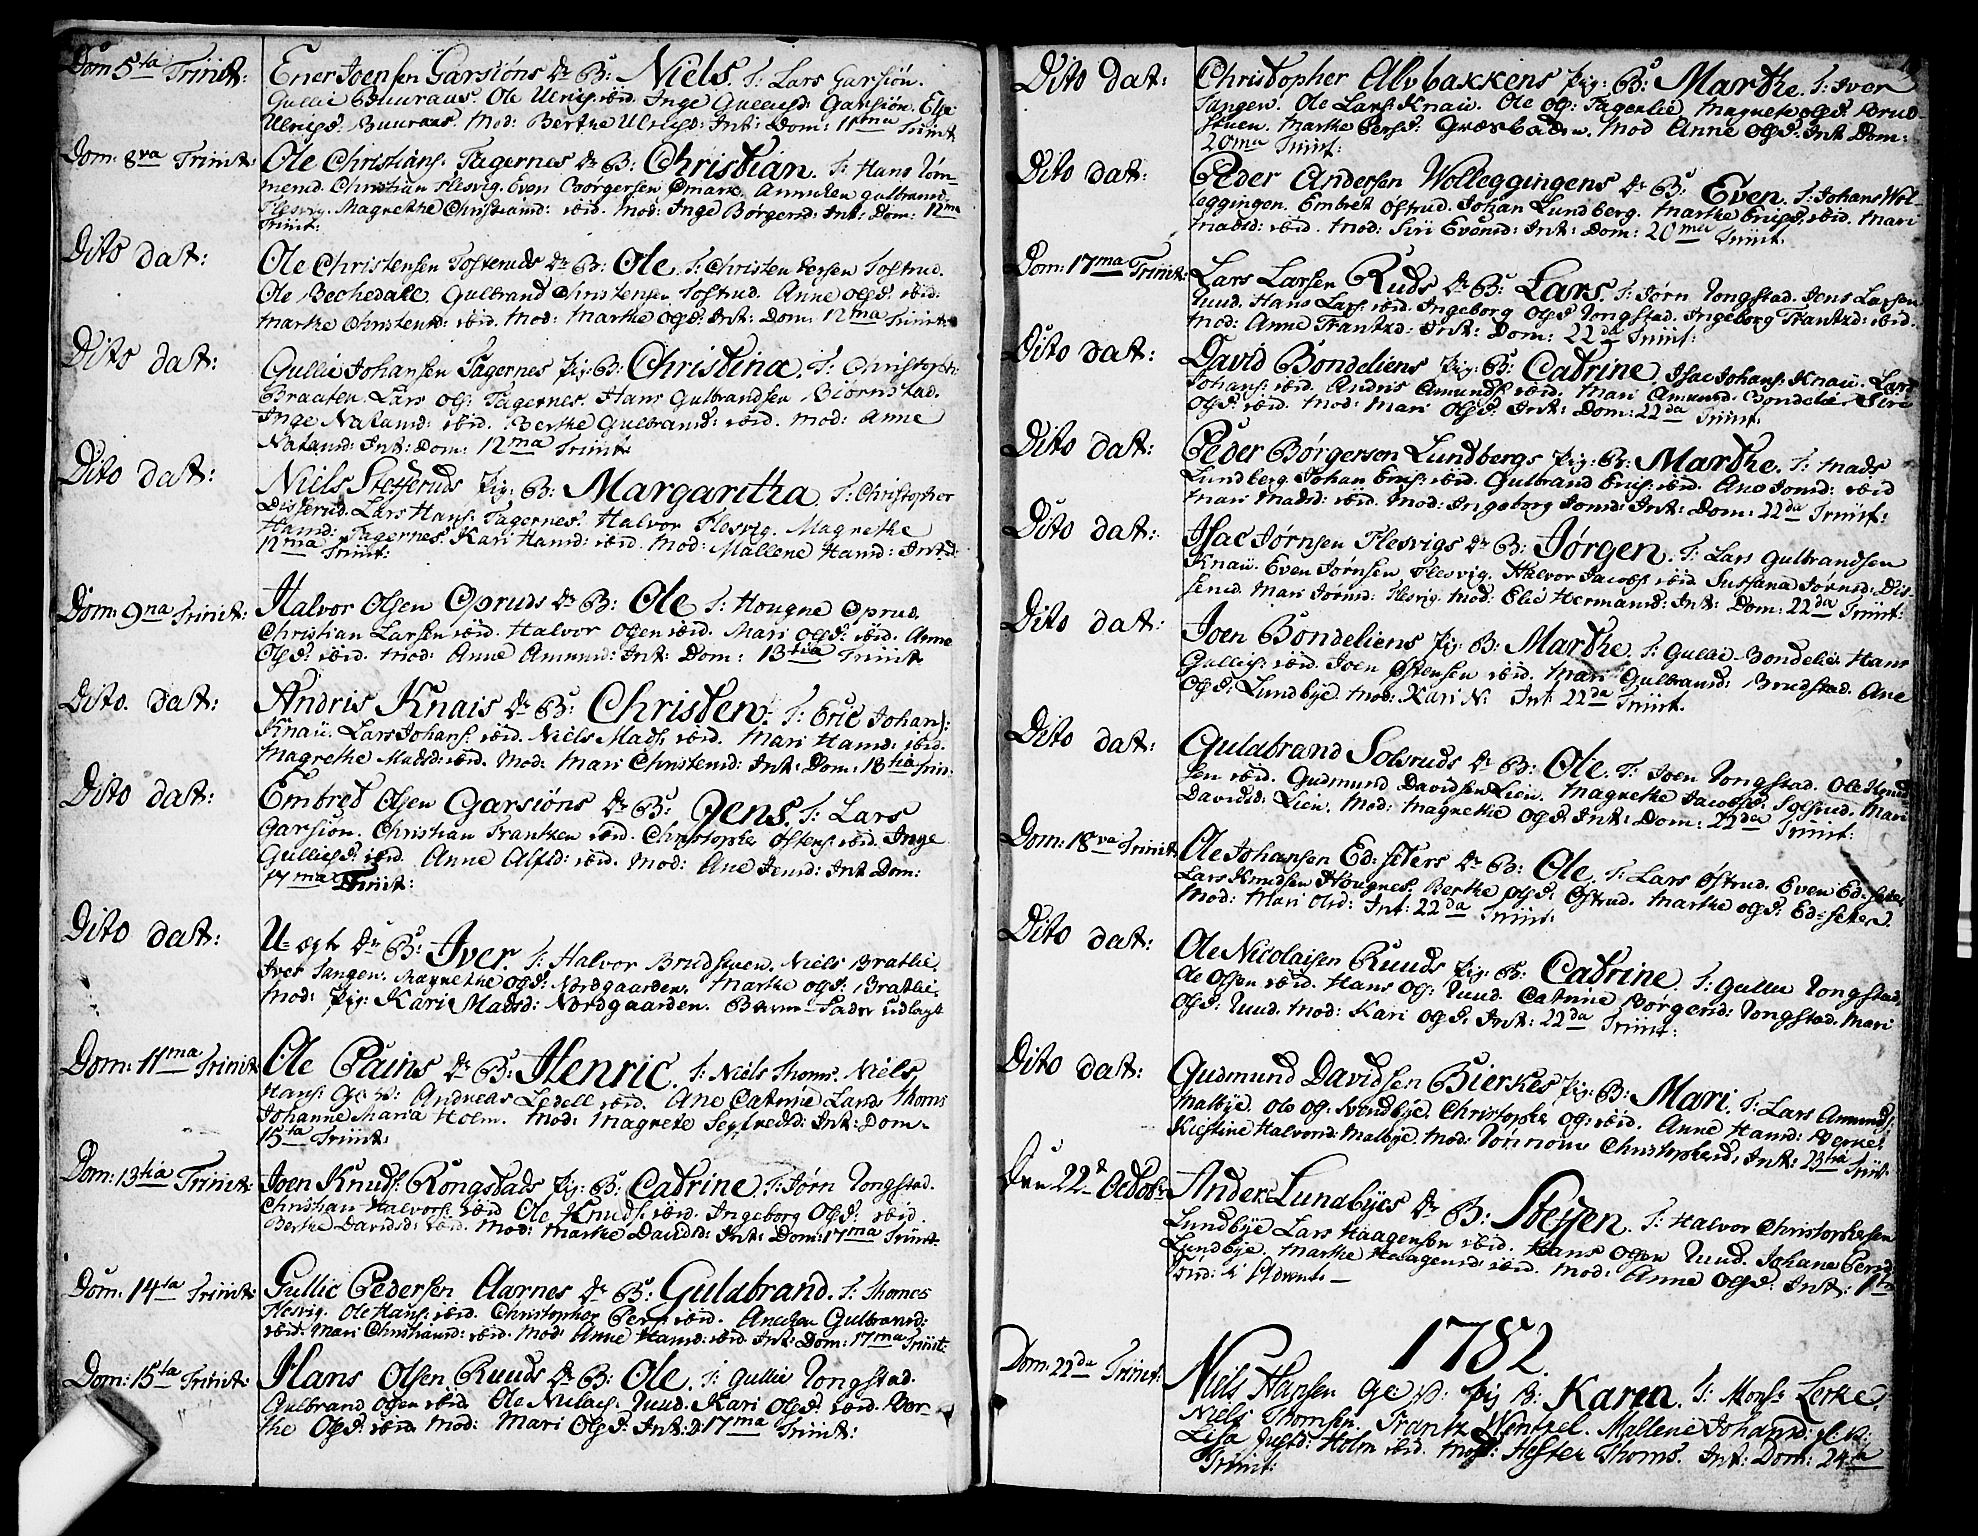 Dom 5ta Trinit: Ener Joensen Garsiöns Dr: B: Niels. T: Lars Garsiön.
Gullic Buuraas. Ole Ulrics: ibid. Inge Gulliesd: Garsiön. Else
Ulrigsd: Buuraas. Mod: Berthe Ulrigsd: Int: Dom: 11ma Trinit
Dom: 8va Trinit: Ole Christians: Fagernes Dr: B: Christian. T: Hans Tøm-
merud. Christian Flesvig. Even Børgersen Gulbrand:
Flesvig. Magrethe Christiansd: ibid. Mod: Inge Børgersd: Int: Dom: 12ma
Trinit:
Dito dat: Ole Christensen Tosteruds Dr: B: Ole. T: Christen Persen Tostrud.
Ole Bechedale. Gulbrand Christensen Tostrud. Anne Olsd: ibid:
Marthe Christensd: ibid. Mod: Marthe Olsd: Int: Dom: 12ma Trinit:
Dito dat: Gullic Johansen Fagernes Pig: B: Christina. T: Christoph:
Braaten. Lars Ols: Fagernes. Hans Gulbrandsen Biörnstad.
Inge Natansd: ibid. Berthe Gulbransd: ibid. Mod: Anne
Natansd: Int: Dom: 12ma Trinit:
Dito dat: Niels Stesseruds Pig: B: Margaretha. T: Christopher
Disserud. Lars Hans: Fagernes. Halvor Flesvig. Magrethe
Hansd: Fagernes. Kari Hansd: ibid. Mod: Mallene Hansd: Int:
12ma Trinit:
Dom: 9na Trinit: Halvor Olsen Opruds Dr: B: Ole. T: Hougne Oprud.
Christian Larsen ibid. Halvor Olsen ibid. Mari Olsd: ibid. Anne
Olsd: ibid. Mod: Anne Amund: Int: Dom: 13tia Trinit
Dito. dat: Andris Knais Dr: B: Christen. T: Eric Johans:
Knaii. Lars Johans: ibid. Niels Mads: ibid. Mari Hansd: ibid.
Magrethe Madsd: ibid. Mod: Mari Christensd: Int: Dom: 13tia Trin:
Dito dat: Embred Olsen Garsiöns Dr: B: Jens. T: Lars
Garsiön. Christian Frantzen ibid. Christopher Østens: ibid. Inge
Gulliesd: ibid. Anne Alfsd: ibid. Mod: Ane Jensd: Int: Dom:
17ma Trinit:
Dito dat: U-ægte Dr: B: Iver. T: Halvor Brudstuen. Niels Brathe.
Iver Tangen. Magrethe Olsd: Nordgaarden. Marthe Olsd: Brathe.
Mod: Pig: Kari Madsd: Nordgaarden. Barne-Fader udlagt
Dom: 11ma Trinit: Ole Pains Dr: B: Henric. T: Niels Thoms. Niels
Hans: Andreas Ledell ibid. Ane Catrine Lars Thoms
Johanne Maria Holm. Mod: Magrete Segfredsd: Int: Dom-
15ta Trinit:
Dom: 13tia Trinit: Joen Knuds: Rongstads Pig: B: Catrine. T: Jørn Rongstad.
Christian Halvors: ibid Ole Knuds: ibid. Ingeborg Olsd: ibid.
Berthe Davidsd: ibid. Mod: Marthe Davidsd: Int: Dom: 17ma Trinit.
Dom: 14ta Trinit: Gullic Pedersen Aarnes Dr: B: Guldbrand. T: Thomes
Flesvig. Ole Hans: ibid. Christopher Pers: ibid. Gulbransd:
ibid. Mari Christiansd: ibid. Mod: Anne Hansd: ibid. Int: Dom: 17ma Trinit:
Dom: 15ta Trinit: Hans Olsen Ruuds Dr: B: Ole. T: Gullic Rongstad.
Gulbrand Olsen ibid. Ole Nulais: Ruud. Kari Olsd: ibid. Dor-
the Olsd: ibid. Mod: Mari Olsd: Int: D: 17ma Trinit:
Dito dat: Christopher Alvbakkens Pig: B: Marthe. T: Iver
Tangen. Ole Lars: Knaii. Ole Ols: Fagerlie. Magrete Olsd: Brud-
stuen. Marthe Persd: Græsbaden. Mod Anne Olsd: Int Dom:
20ma Trinit:
Dito dat: Peder Andersen Wolleggingens Dr: B: Even. T: Johans Wol-
leggingen. Embret Ostrud. Johan Lundberg. Marthe Ericsd: ibid. Mari
Madsd: ibid. Mod: Siri Evensd: Int: Dom: 20ma Trinit.
Dom: 17ma Trinit: Lars Larsen Ruds Dr: B: Lars. T: Jørn Rongstad. Jens Larsen
Ruud. Hans Lars: ibid. Ingeborg Olsd: Rongstad. Ingeborg Frantzd: ibid.
Mod: Anne Frantzd: Int: Dom: 22da Trinit:
Dito dat: David Bondeliens Pig: B: Catrine. Isac Johans: Knaii. Lars
Johans: ibid. Andris Amunds: ibid. Mari Amunsd: Bondelie. Siri
Olsd: ibid. Mod: Mari Olsd: Int: Dom: 22da Trinit.
Dito dat: Peder Børgersen Lundbergs Pig: B: Marthe. T: Mads
Lundberg. Johan Erics: ibid. Gulbrand Erics: ibid. Ane Jonsd: ibid
Mari Madsd: ibid. Mod: Ingeborg Jonsd: Int: Dom: 22da Trinit:
Dito dat: Isac Jørnsen Flesvigs Dr: B: Jørgen. T: Lars Gulbrandsen
Knaii. Even Jørnsen Flesvig. Halvor Jacobs: ibid Sussana Jørnsd: Dis-
serud. Mari Jørnsd: Flesvig. Mod: Elie Hermansd: Int: Dom: 22da Trinit:
Dito dat: Joen Bondeliens Pig: B: Marthe. T: Gullic Bondelie. Hans
Gullics: ibid. Joen Østensen ibid. Mari Gulbransd: Brudstad. Ane
Olsd: Lundbye. Mod: Kari N. Int 22da Trinit.
Dito dat: Guldbrand Solsruds Dr: B: Ole. T: Joen Rongstad. Ole Knud-
sen ibid. Gudmund Davidsen Lien. Magrethe Jacobsd: Solsrud. Mari
Davidsd: Lien. Mod: Magrethe Olsd: Int: Dom: 22da Trinit:
Dom: 18va Trinit: Ole Johansen Ed-seters Dr: B: Ole. T: Lars Østrud. Even Ed-seter
Lars Knudsen Hougnes. Berthe Olsd: Østrud. Marthe Olsd: Ed-seter.
Mod: Mari Olsd: Int: 22da Trinit:
Dito dat: Ole Nicolaisen Ruuds Pig: B: Catrine. T: Gullic Rongstad,
Ole Olsen ibid. Hans Ols: Ruud. Catrine Børgersd: Rongstad. Mari
Olsd: Ruud. Mod: Kari Olsd: Int: 22da Trinit:
Dito dat: Gudmund Davidsen Bierkes Pig: B: Mari. T: Lars Amunds:
Malbye. Ole Ols: Svendbye. Christopher Ols: ibid. Anne Hansd: Berke.
Kiestine Halvorsd: Malbye. Mod: Christophersd: Int: 23tia Trinit:
Den 22d Octobr Anders Lundbyes Dr: B: Steffen. T: Halvor Christophersen
Lundbye. Lars Haagensen ibid. Hans Olsen Ruud. Johane Persd:
Lundbye. Marthe Haagensd: ibid. Mod: Anne Olsd: Int: 1ste
Sønd: i Advent. —
1782.
Dom: 22da Trinit: Niels Hansen Pig B: Karen. T: Monsr Lerke.
Niels Thomsen. Frantz Wentzel. Mallene Johansd:
Lisa Justd: Holm ibid. Mod: Hester Thoms. Int: Dom: 24ta
Trinit: